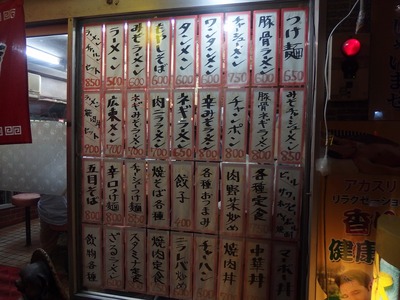 つけ麺
650
豚骨ラーメン
600
チャーシューメン
750
ワンタンメン
600
タンメン
600
もやしそば
600
みそラーメン
600
ラーメン
500
850
みそチャーシューメン
850
豚骨ネギラーメン
チャンポン
800
辛みそラーメン
ネギラーメン
650
肉ラーメン
700
ネギみそラーメン
700
広東メン
700
900
各種定食
肉野菜炒め
各種おつまみ
餃子
400
焼そば各種
チャーシューつけ麺
850
辛口つけ麺
五目そば
800
マーボー丼
中華丼
焼肉丼
チャーハン
ニラレバ炒め
焼肉定食
スタミナ定食
ざるラーメン
飲物各種
アカスリ
リラクゼーション
香
健康